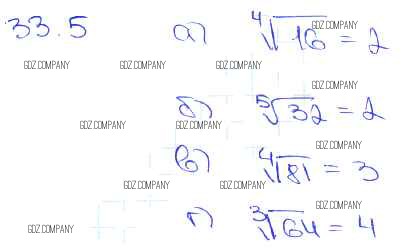 33.5 а) ⁴√16 = 2
GDZ.COMPANY
GDZ.COMPANY GDZ.COMPANY GDZ.COMPANY
GDZ.COMPANY
б) ⁵√32 = 2
GDZ.COMPANY GDZ.COMPANY GDZ.COMPANY
GDZ.COMPANY
в) ⁴√81 = 3
GDZ.COMPANY GDZ.COMPANY
GDZ.COMPANY
г) ³√64 = 4
GDZ.COMPANY GDZ.COMPANY